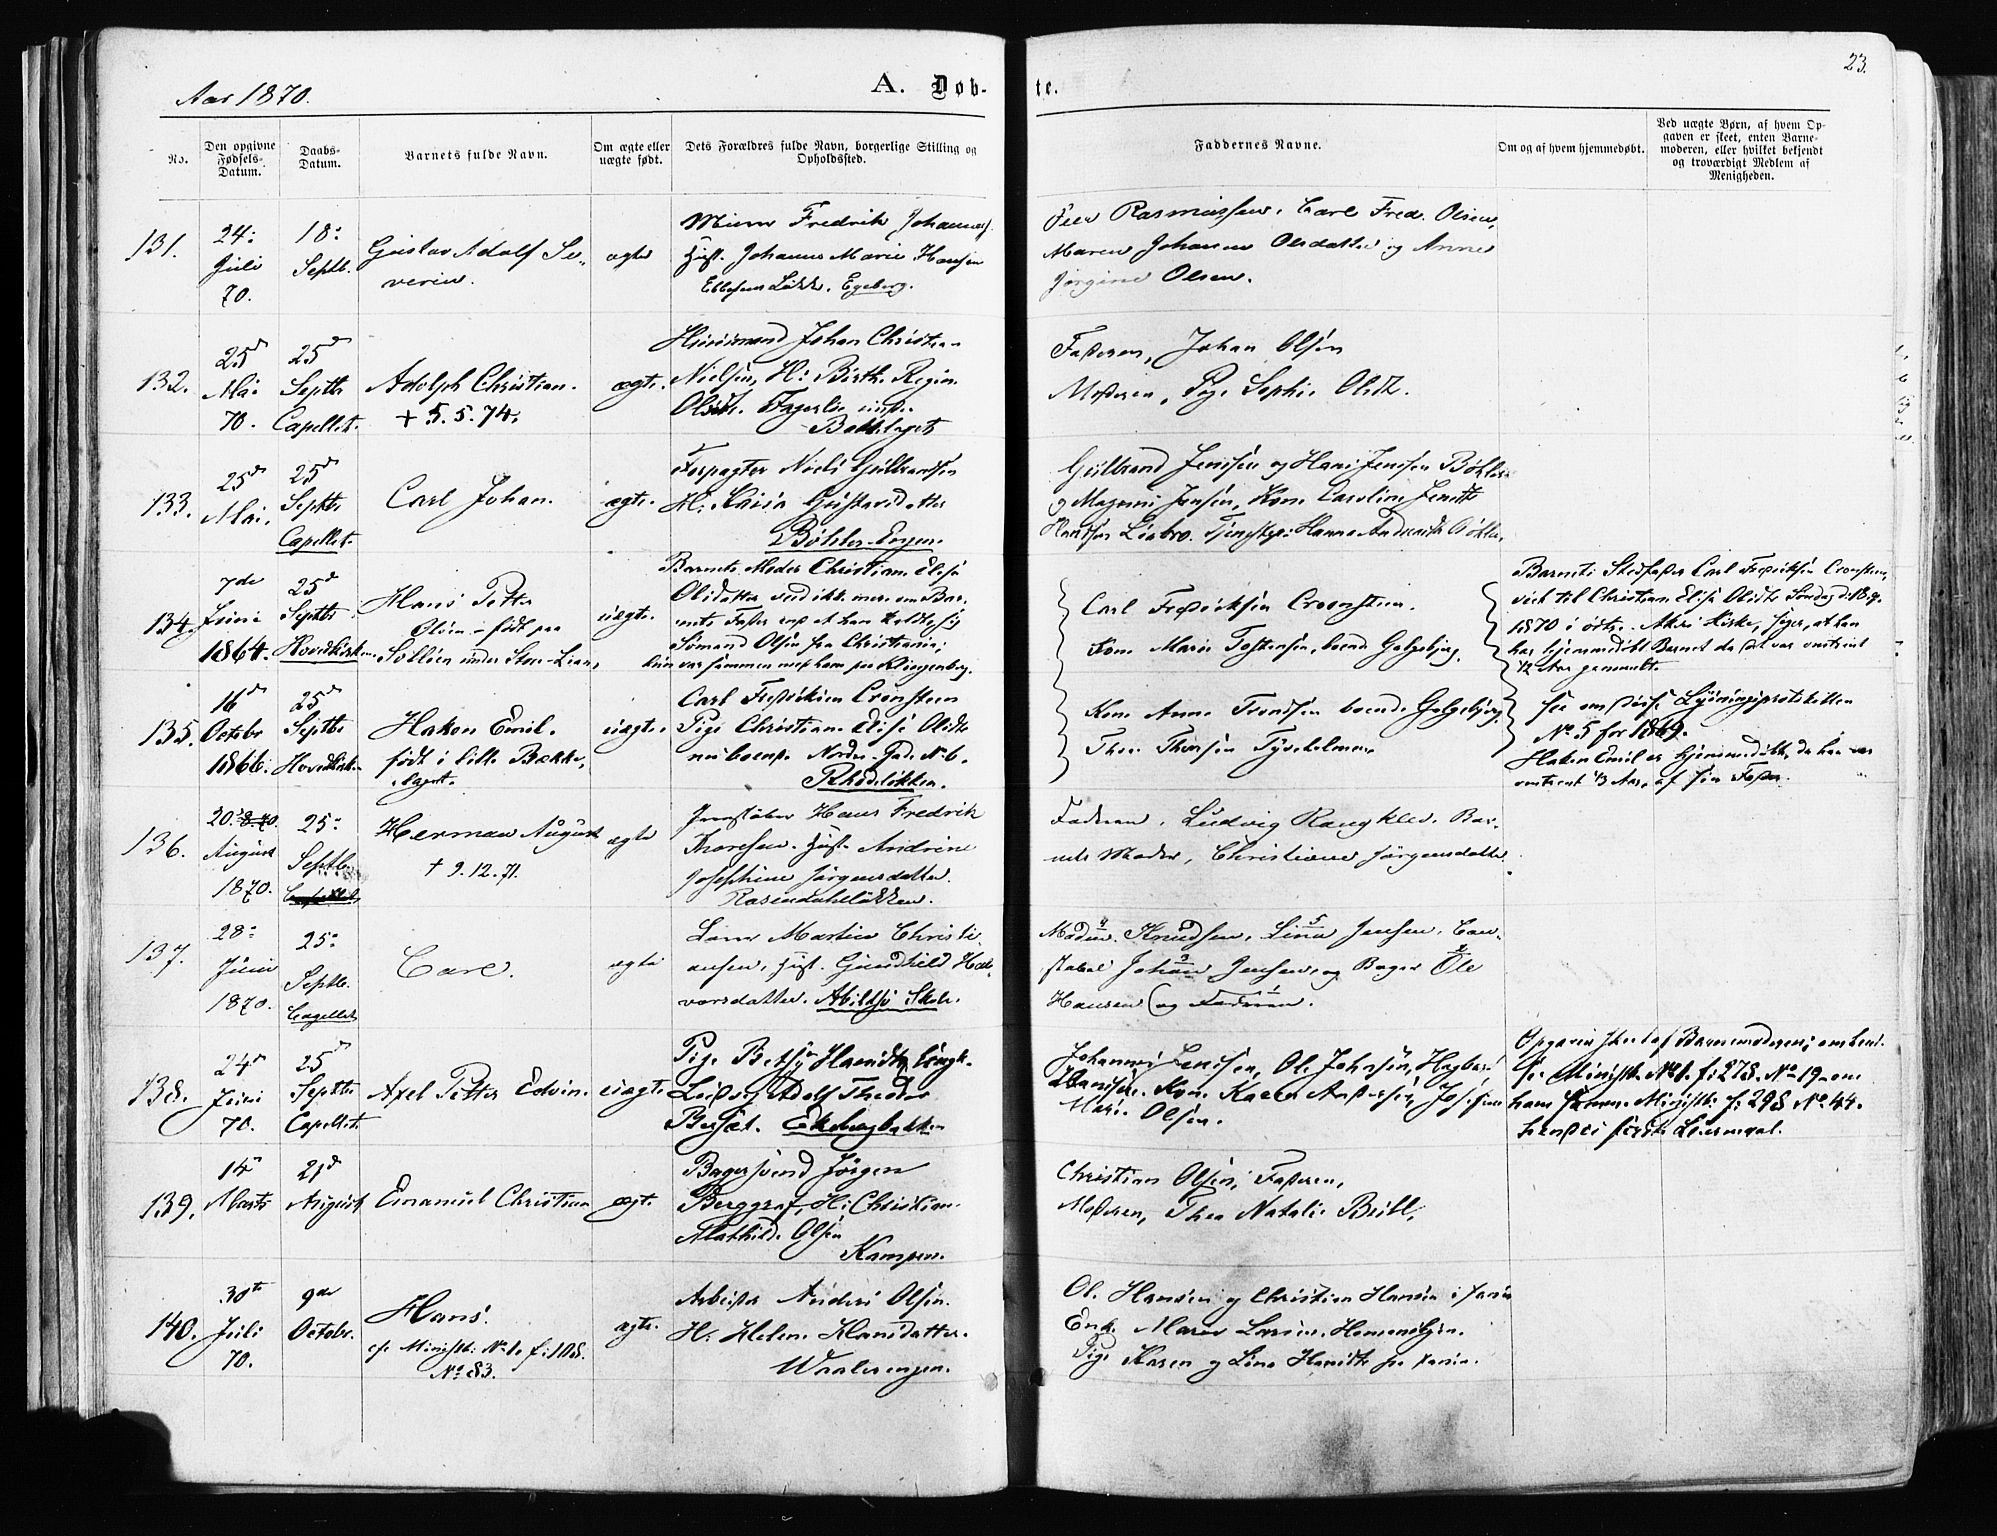 Aar 1870.
A. Døb-
te.
23.
No.
Den opgivne Fødsels-Datum.
Daabs-Datum.
Barnets fulde Navn.
Om ægte eller uægte født.
Dets Forældres fulde Navn, borgerlige Stilling og Opholdssted.
Faddernes Navne.
Om og af hvem hjemmedøbt.
Ved uægte Børn, af hvem Op-
gaven er skeet, enten Barne-
moderen, eller hvilket bekjendt
og troværdigt Medlem af
Menigheden.
131.
24:
Juli
70.
18:
Septb.
Gustav Adolf Se-
verin.
ægte
Fredrik Johannes
Hust. Johanne Marie Hansen
Løkke, Egeberg.
Peer Rasmussen, Carl Fred. Olsen,
Maren Johanne Olsdatter og Anne
Jørgine Olsen.
132.
25d
Mai
70.
25d
Septbr
Capellet.
Adolph Christian.
+ 5.5.74.
ægte.
Huusmand Johan Christian
Nielsen, H: Birthe Regine
Olsdtr. Fagerlie under
Bækkelaget
Faderen, Johan Olsen
Moderen, Pige Sophie Olsdtr.
133.
25d
Mai,
25d
Septbr
Capellet.
Carl Johan.
ægte.
Forpagter Niels Gulbrandsen
H: Lovisa Gustavsdatter
Bøhler-Engen.
Gulbrand Jensen og Hans Jensen Bøhler
og Magnus Jensen, Kone Caroline
Liabro. Tjenestep: Hanne Bøhler.
134.
7de
Juni
1864.
25d
Septbr
Hovedkirken.
Hans Petter
Olsen - født paa
under Store-Lian,
uægte.
Barnets Moder Christiane Elise
Olsdatter veed ikke mere om Bar-
nets Fader end at han kaldte sig
Sømand Olsen fra Christiania;
hun var sammen med ham paa Klingenberg.
Carl Fredriksen Cronsteen.
Kone Marie Tostensen, boende Galgebjerg.
Barnets Stedfader Carl Fredriksen Cronsteen,
viet til Christiane Elise Olsdtr Søndag d: 18/9.
1870 i Akers Kirke, siger, at han
har hjemmedøbt Barnet da det var omtrent
1/2 Aar gammelt.
135.
16d
Octobr
1866.
25d
Septbr
Hovedkirken
Hakon Emil.
født i lille Bække-
laget.
uægte.
Carl Fredriksen Cronsteen
Pige Christiane Elise Olsdtr
nu boende Nordre Gade No 6.
Rhodeløkken.
Kone Anne Trondsen boende Galgebjerg,
Thor Thorsen Tyveholmen
see om disse Lysningsprotokollen
No 5 for 1869.
Hakon Emil er hjemmedøbt, da han var
omtrent 1/3 Aar, af sin Fader.
136.
20: 8.70.
August
1870.
25:
Septbr.
Capellet.
Herman August
+ 9.12.71.
ægte
Hans Fredrik
Thoresen. Hust. Andrine
Josephine Jørgensdatter.
Rosendahlsløkken.
Faderen, Ludvig Rangklev. Bar-
nets Moder, Christiane Jørgensdatter.
137.
28:
Juni
1870.
25:
Septbr.
Capellet
Carl.
ægte
Martin Christi-
ansen, Hust. Gundhild Hal-
vorsdatter. Abildsø Skole.
4 5
Knudsen, Lina Jensen, Con-
3 2
stabel Johan Jensen og Bager Ole
1
Hansen (og Faderen.
138.
24d
Juni
70.
25d
Septbr
Capellet.
Axel Petter Edvin.
uægte.
Pige Betsy
Adolf Theodor
Ekebergbakken
Johannes Ole Johnsen,
Kone Karen Andersen, Josefine
Marie Olsen.
Opgaven skeet af Barnemoderen;
see Ministb: No 1. f: 278. No 19 - om
ham samme Ministb: f: 298 No 44.
hendes første Leiermaal.
139.
14d
Marts
21d
August
Emanuel Christian
ægte.
Bagersvend Jørgen
Berggraf, H: Christiane
Mathilde Olsen
Kampen.
Christian Olsen, Faderen,
Moderen, Thea Natalie
140.
30te
Juli
70.
9de
Octobr.
Hans.
cfr Ministb: No 1. f: 108.
No 83.
ægte.
Arbeider Anders Olsen.
H: Helene Hansdatter.
Waalerengen.
Ole Hansen og Christian Hansen i
Enke Maren Larsen,
Pige Karen og Lina Hansdtr fra